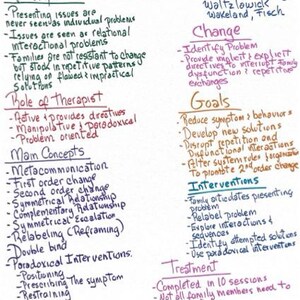 - Presenting issues are
never seen as individual problems
- Issues are seen as relational
interactional problems
- Families are not resistant to change
but stuck in repetitive patterns &
relying on flawed & impractical
solutions
Role of Therapist
- Active & provides directives
- Manipulative & paradoxical
- Problem oriented
Main Concepts
- Metacommunication
- First order change
- Second order change
- Symmetrical Relationship
- Complementary Relationship
- Symmetrical Escalation
- Relabeling (Reframing)
- Double bind
- Paradoxical Interventions:
- Positioning
- Prescribing the symptom
- Restraining
Watzlawick
Weakland, Fisch
Change
- Identify Problem
- Provide implicit & explicit
directives to interrupt family
dysfunction & repetitive
exchanges
Goals
- Reduce symptoms & behaviors
- Develop new solutions
- Disrupt repetition and
Dysfunctional interactions
- Alter system rules & organization
to promote 2nd order change
Interventions
- Family articulates presenting
problem
- Relabel problem
- Explore interactions &
sequences
- Identify attempted solutions
- Use paradoxical interventions
Treatment
- Completed in 10 sessions
- Not all family members need to